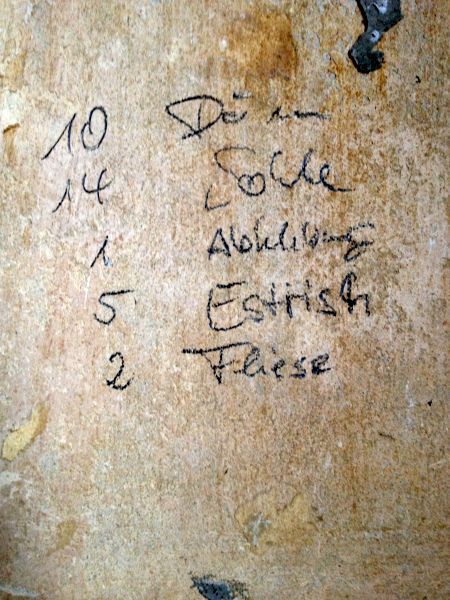 10
14 Sohle
1 Abklebung
5 Estrich
2 Fliese